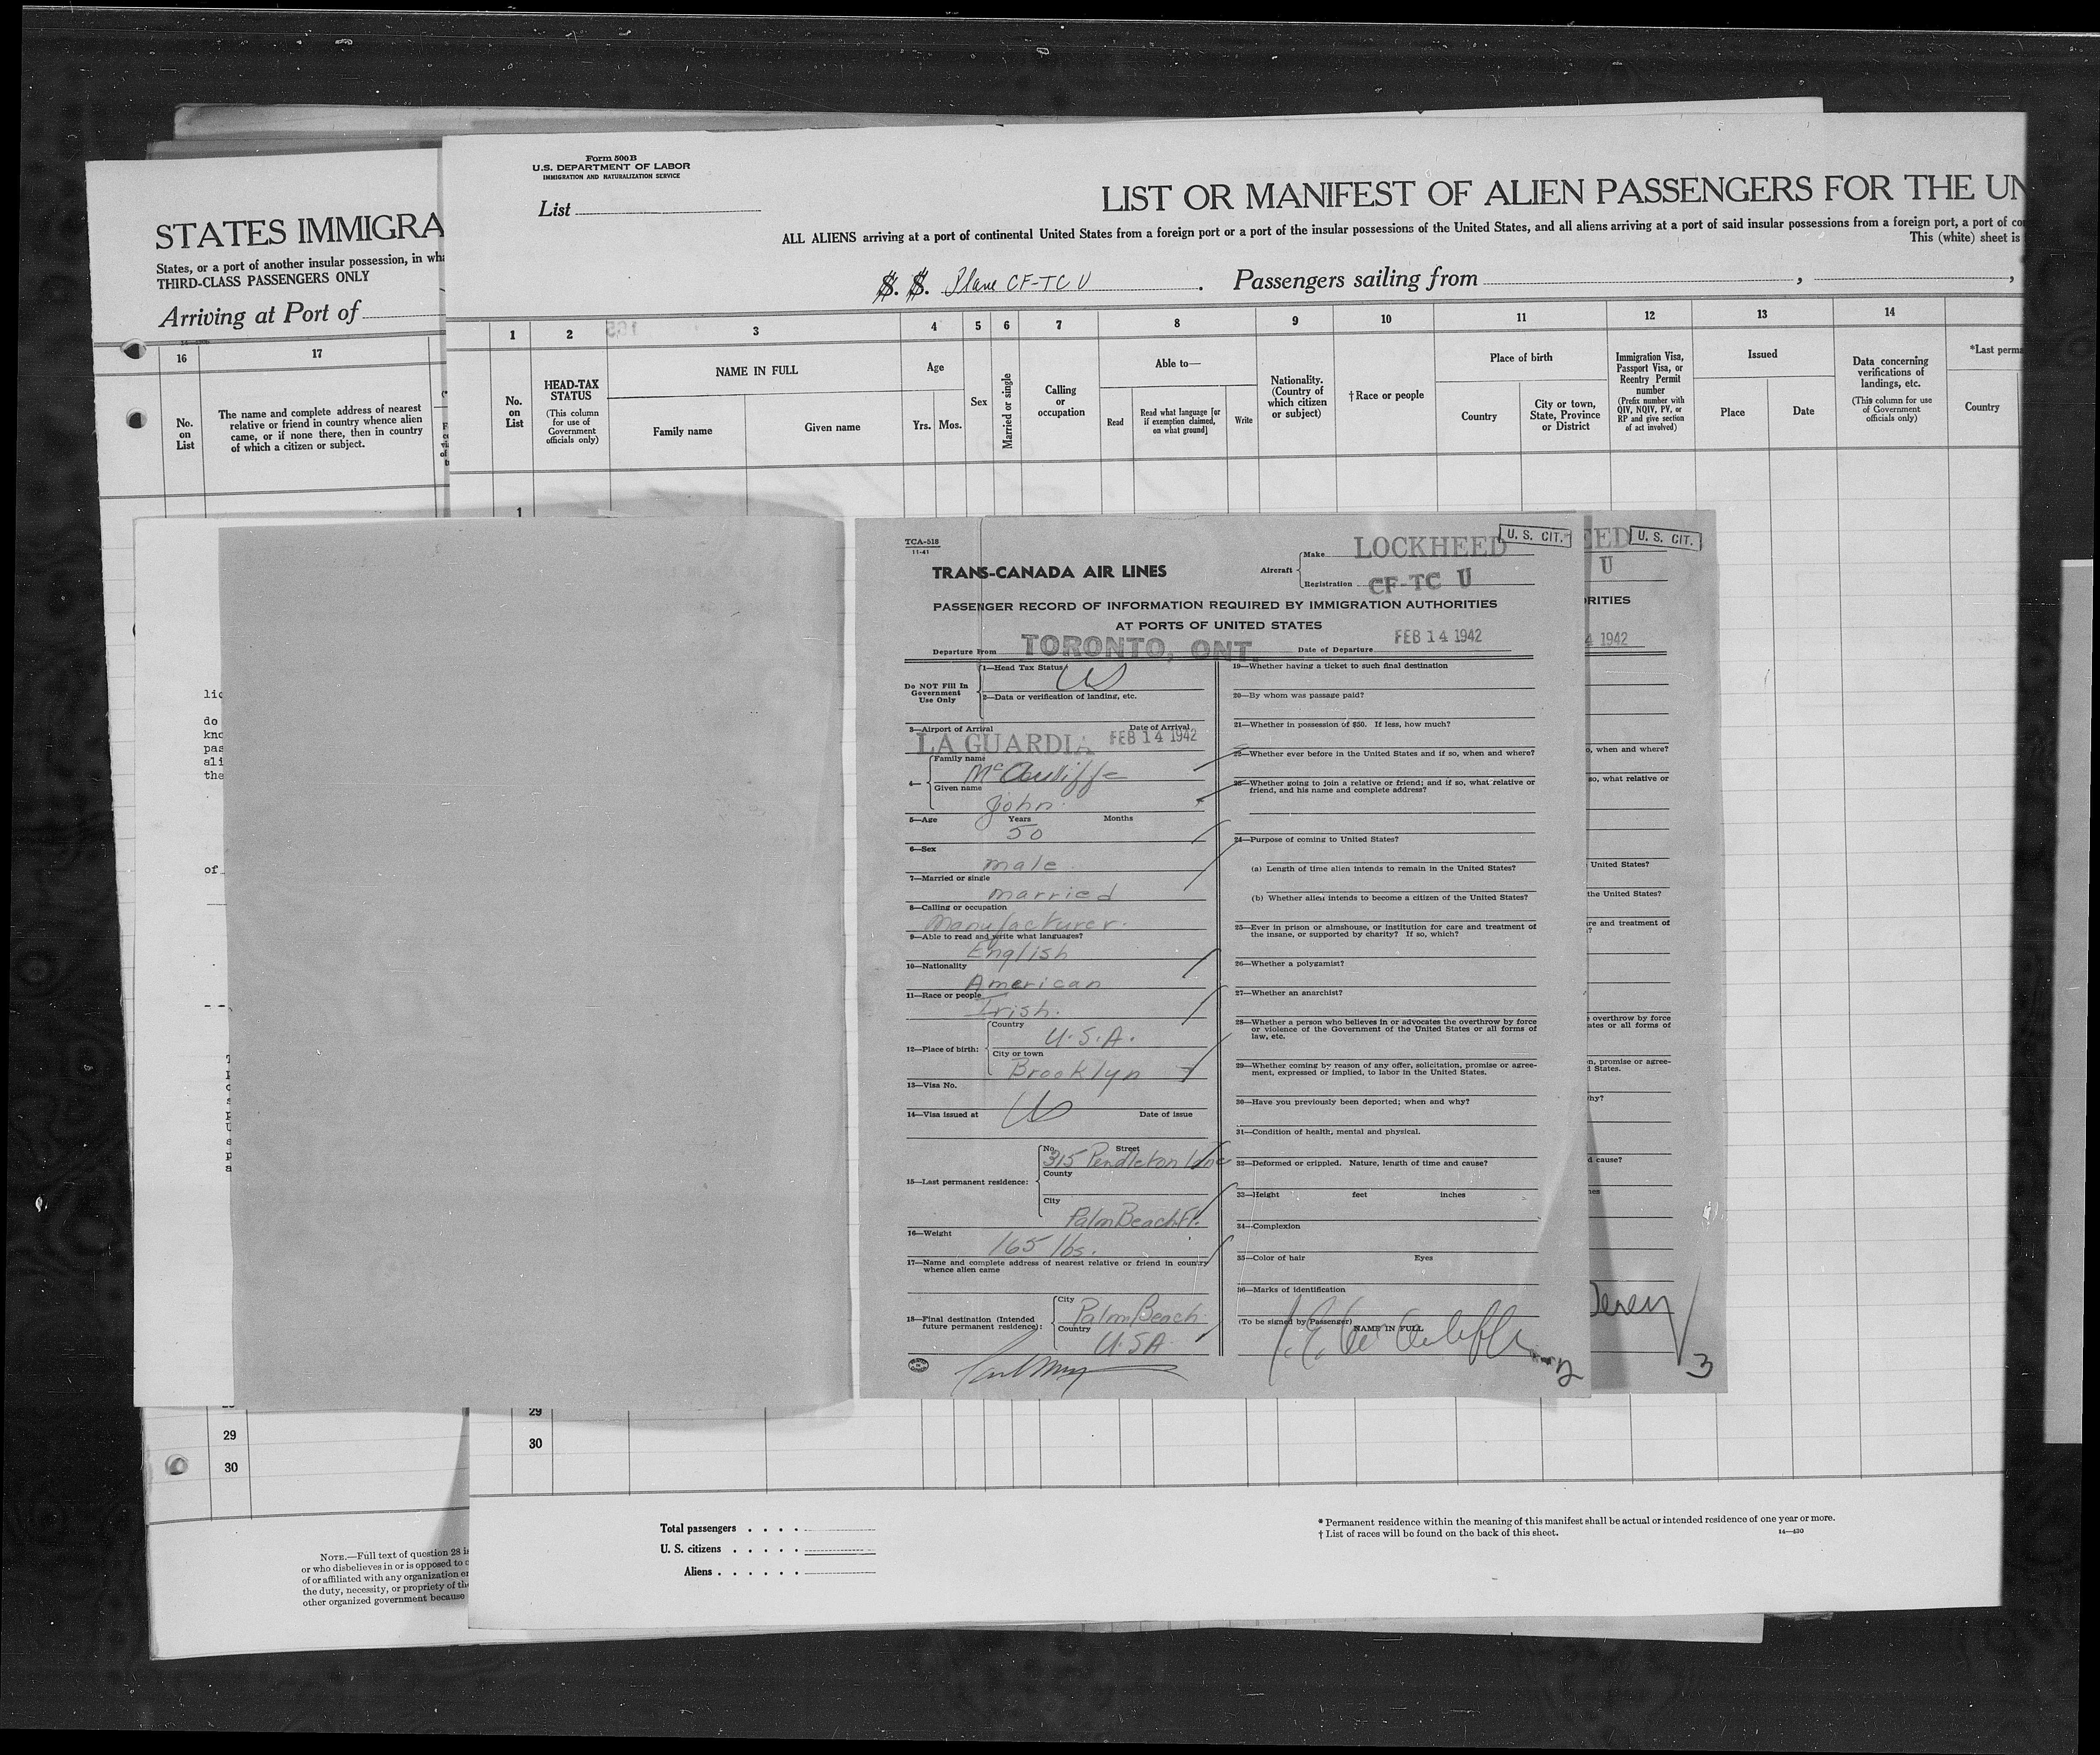 STATES IMMIGRA
States, or a port of another insular possession, in wha
THIRD-CLASS PASSENGERS ONLY
Arriving at Port of
16
17
No.
on
List
The name and complete address of nearest
relative or friend in country whence alien
came, or if none there, then in country
of which a citizen or subject.
lic
do
kno
pas
ali
the
of
29
30
NOTE.—Full text of question 28 is
or who disbelieves in or is opposed to o
of or affiliated with any organization en
the duty, necessity, or propriety of the
other organized government because
Form 500B
U.S. DEPARTMENT OF LABOR
IMMIGRATION AND NATURALIZATION SERVICE
List
LIST OR MANIFEST OF ALIEN PASSENGERS FOR THE UN
ALL ALIENS arriving at a port of continental United States from a foreign port or a port of the insular possessions of the United States, and all aliens arriving at a port of said insular possessions from a foreign port, a port of con
This (white) sheet is
S. S. Plane CF-TCU. Passengers sailing from , ,
1 2 3 4 5 6 7 8 9 10 11 12 13 14
No.
on
List
HEAD-TAX
STATUS
(This column
for use of
Government
officials only)
NAME IN FULL
Family name
Given name
Age
Yrs. Mos.
Sex
Married or single
Calling
or
occupation
Able to—
Read
Read what language [or
if exemption claimed,
on what ground]
Write
Nationality.
(Country of
which citizen
or subject)
†Race or people
Place of birth
Country
City or town,
State, Province
or District
Immigration Visa,
Passport Visa, or
Reentry Permit
number
(Prefix number with
QIV, NQIV, PV, or
RP and give section
of act involved)
Issued
Place
Date
Data concerning
verifications of
landings, etc.
(This column for use
of Government
officials only)
*Last perma
Country
1
TCA-518
11-41
TRANS-CANADA AIR LINES
Aircraft
Make LOCKHEED
U. S. CIT.
Registration CF-TC U
PASSENGER RECORD OF INFORMATION REQUIRED BY IMMIGRATION AUTHORITIES
AT PORTS OF UNITED STATES
Departure from TORONTO, ONT.
Date of Departure FEB 14 1942
Do NOT Fill In
Government
Use Only
1—Head Tax Status
US
2—Data or verification of landing, etc.
3—Airport of Arrival
Date of Arrival
LA GUARDIA FEB 14 1942
4—
Family name
McAuliffe
Given name
John
5—Age Years Months
50
6—Sex
male
7—Married or single
married
8—Calling or occupation
Manufacturer.
9—Able to read and write what languages?
English
10—Nationality
American
11—Race or people
Irish.
12—Place of birth:
Country
U.S.A.
City or town
Brooklyn
13—Visa No.
14—Visa issued at
US
Date of issue
15—Last permanent residence:
No. Street
315 Pendleton Lane
County
City
Palm Beach Fl.
16—Weight
165 lbs.
17—Name and complete address of nearest relative or friend in country
whence alien came
18—Final destination (Intended
future permanent residence):
City
Palm Beach
Country
U.S.A.
19—Whether having a ticket to such final destination
20—By whom was passage paid?
21—Whether in possession of $50. If less, how much?
22—Whether ever before in the United States and if so, when and where?
23—Whether going to join a relative or friend; and if so, what relative or
friend, and his name and complete address?
24—Purpose of coming to United States?
(a) Length of time alien intends to remain in the United States?
(b) Whether alien intends to become a citizen of the United States?
25—Ever in prison or almshouse, or institution for care and treatment of
the insane, or supported by charity? If so, which?
26—Whether a polygamist?
27—Whether an anarchist?
28—Whether a person who believes in or advocates the overthrow by force
or violence of the Government of the United States or all forms of
law, etc.
29—Whether coming by reason of any offer, solicitation, promise or agree-
ment, expressed or implied, to labor in the United States.
30—Have you previously been deported; when and why?
31—Condition of health, mental and physical.
32—Deformed or crippled. Nature, length of time and cause?
33—Height feet inches
34—Complexion
35—Color of hair Eyes
36—Marks of identification
(To be signed by Passenger)
NAME IN FULL
2
EED
U. S. CIT.
U
ORITIES
4 1942
o, when and where?
so, what relative or
United States?
the United States?
re and treatment of
?
overthrow by force
ates or all forms of
n, promise or agree-
d States.
hy?
d cause?
hes
3
29
30
Total passengers . . . .
U. S. citizens . . . . .
Aliens . . . . . .
* Permanent residence within the meaning of this manifest shall be actual or intended residence of one year or more.
† List of races will be found on the back of this sheet.
14—430